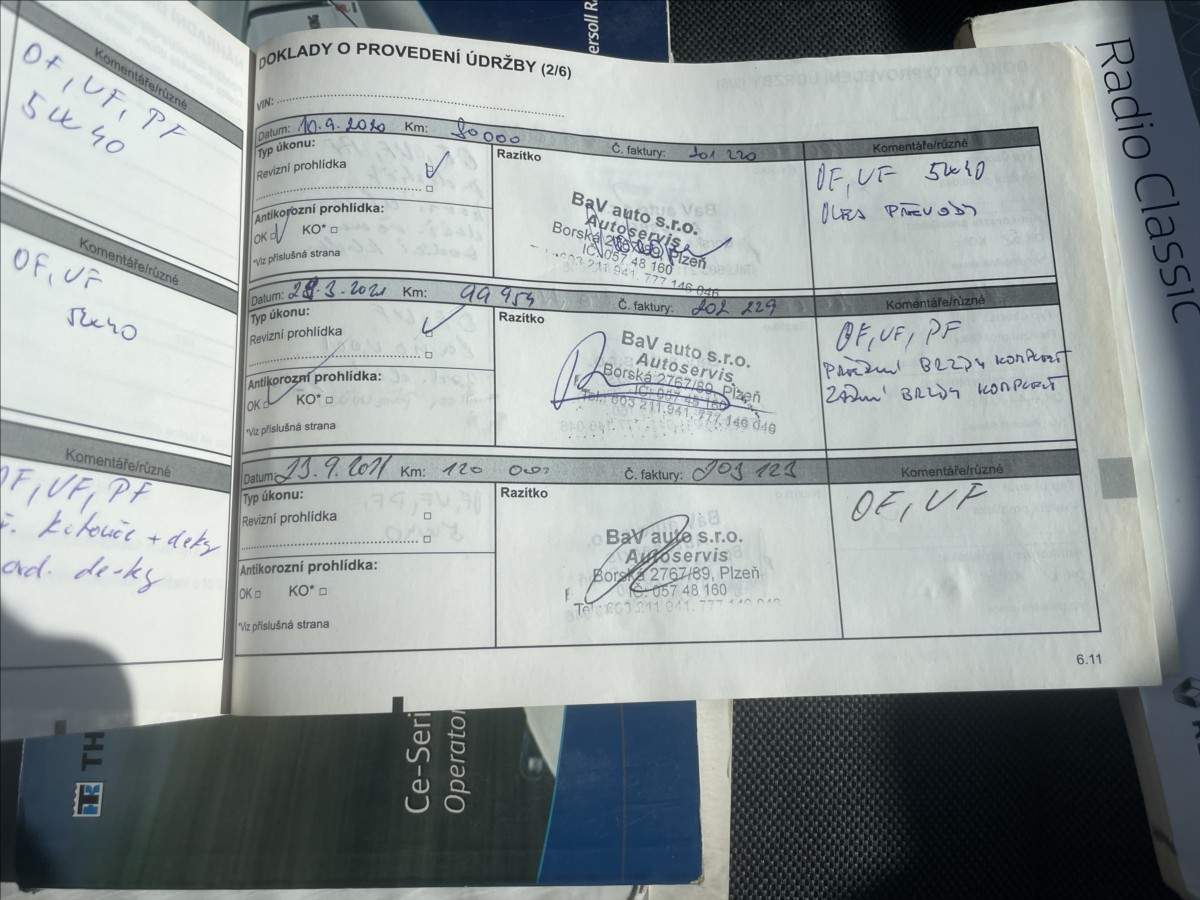 Komentáře/různé
OF, VF, PF
5W40
Komentáře/různé
OF, VF
5W40
Komentáře/různé
OF, VF, PF
kotouče + desky
desky
DOKLADY O PROVEDENÍ ÚDRŽBY (2/6)
VIN:
Datum: 10.9.2020 Km: 80000 Č. faktury: 201 220 Komentáře/různé
Typ úkonu:
Revizní prohlídka
Antikorozní prohlídka:
OK KO*
*Viz příslušná strana
Razítko
BaV auto s.r.o.
Autoservis
Borská 2767/89, Plzeň
IČ: 057 48 160
603 211 941, 777 146 046
OF, VF 5W40
OLEJ PŘEVODY
Datum: 29.3.2021 Km: 99 954 Č. faktury: 202 229 Komentáře/různé
Typ úkonu:
Revizní prohlídka
Antikorozní prohlídka:
OK KO*
*Viz příslušná strana
Razítko
BaV auto s.r.o.
Autoservis
Borská 2767/89, Plzeň
IČ: 057 48 160
Tel.: 603 211 941, 777 146 046
OF, VF, PF
PŘEDNÍ BRZDY KOMPLET
ZADNÍ BRZDY KOMPLET
Datum: 23.9.2021 Km: 120 000 Č. faktury: 203 123 Komentáře/různé
Typ úkonu:
Revizní prohlídka
Antikorozní prohlídka:
OK KO*
*Viz příslušná strana
Razítko
BaV auto s.r.o.
Autoservis
Borská 2767/89, Plzeň
IČ: 057 48 160
Tel.: 603 211 941, 777 146 046
OF, VF
6.11
Radio Classic
ersoll R
TH
Ce-Seri
Operator